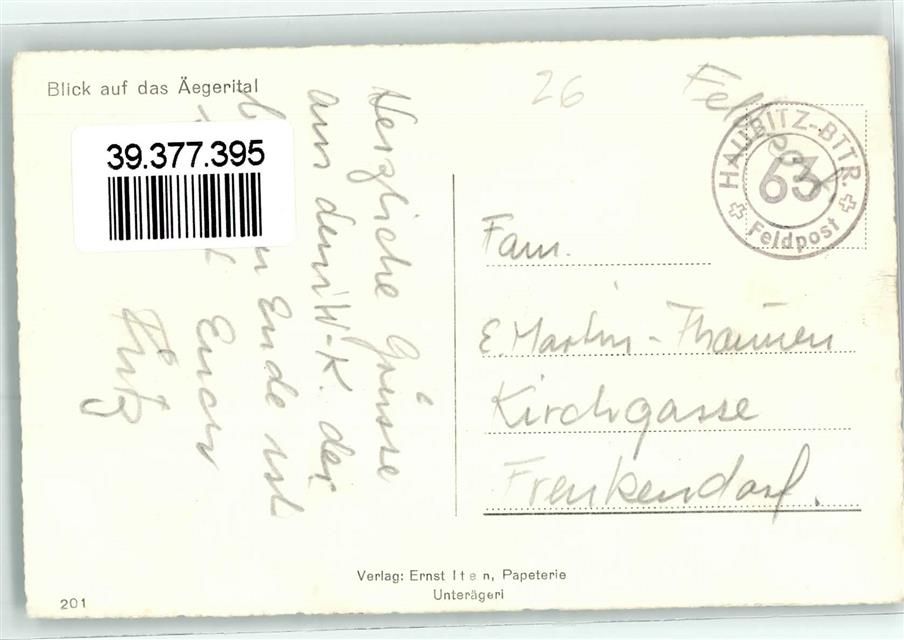 Blick auf das Äegerital
39.377.395
Herzliche Grüsse
aus dem W-K. der
Ende ist
Euer
Fritz
26
Feldpost
HAUBITZ-BTTR.
63
Feldpost
Fam.
E. Martin-Thommen
Kirchgasse
Frenkendorf.
Verlag: Ernst Iten, Papeterie
Unterägeri
201